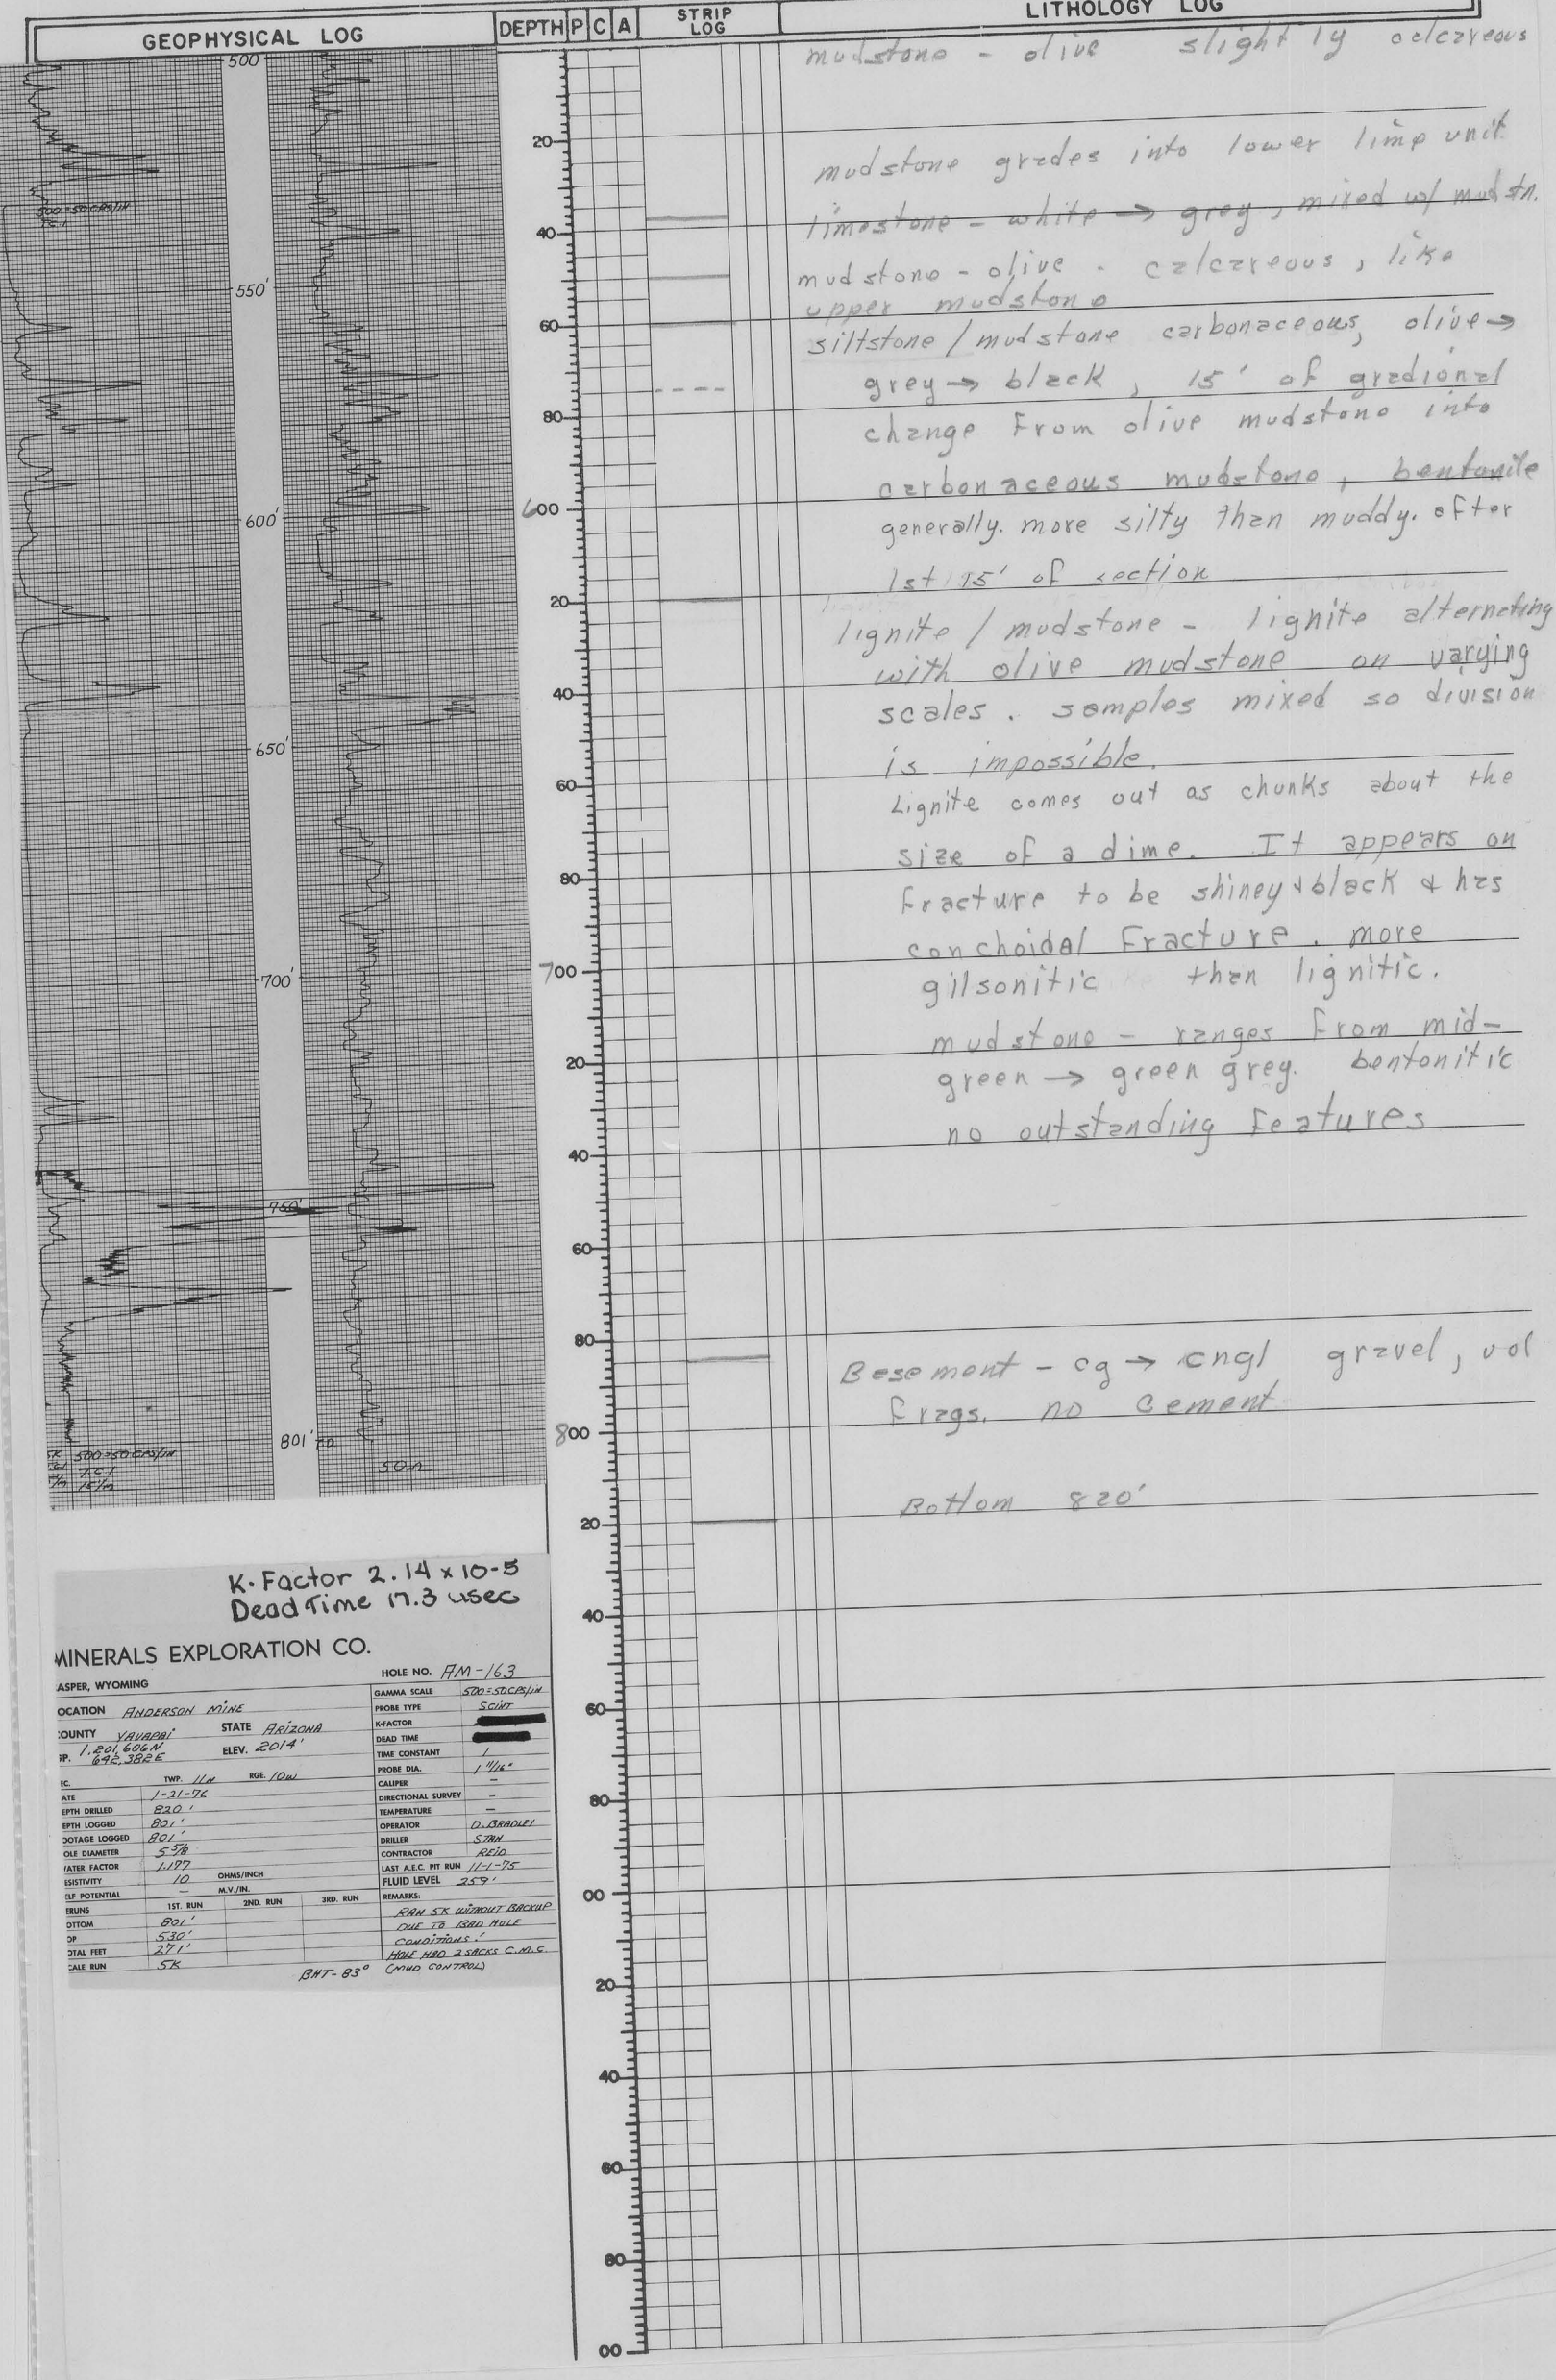 GEOPHYSICAL LOG
DEPTH P C A
STRIP LOG
LITHOLOGY LOG
500
500=50CPS/IN
T.C.1
550'
600'
650'
700'
750'
801' T.D.
5K 500=50CPS/IN
T.C.1
15'/m
50
20
40
60
80
600
20
40
60
80
700
20
40
60
80
800
20
40
60
80
00
20
40
60
80
00
mudstone - olive slightly calcareous
mudstone grades into lower lime unit
limestone - white → grey, mixed w/ mudstn.
mudstone - olive - calcareous, like
upper mudstone
siltstone / mudstone carbonaceous, olive →
grey → black, 15' of gradional
change from olive mudstone into
carbonaceous mudstone, bentonite
generally. more silty than muddy. after
1st 15' of section
lignite / mudstone - lignite alternating
with olive mudstone on varying
scales. samples mixed so division
is impossible.
Lignite comes out as chunks about the
size of a dime. It appears on
fracture to be shiney & black & has
conchoidal fracture. more
gilsonitic than lignitic.
mudstone - ranges from mid-
green → green grey. bentonitic
no outstanding features
Basement - cg → cngl gravel, vol
frags. no cement
Bottom 820'
K-Factor 2.14 x 10-5
Dead Time 17.3 usec
MINERALS EXPLORATION CO.
ASPER, WYOMING
HOLE NO. AM-163
OCATION ANDERSON MINE
OUNTY YAVAPAI STATE ARIZONA
SP. 1,201,606N
642,382E ELEV. 2014'
EC. TWP. 11N RGE. 10W
ATE 1-21-76
EPTH DRILLED 820'
EPTH LOGGED 801'
OOTAGE LOGGED 801'
OLE DIAMETER 5 5/8
ATER FACTOR 1.177
ESISTIVITY 10 OHMS/INCH
ELF POTENTIAL - M.V./IN.
ERUNS 1ST. RUN 2ND. RUN 3RD. RUN
OTTOM 801'
OP 530'
OTAL FEET 271'
CALE RUN 5K
GAMMA SCALE 500=50CPS/IN
PROBE TYPE SCINT
K-FACTOR
DEAD TIME
TIME CONSTANT 1
PROBE DIA. 1 11/16"
CALIPER -
DIRECTIONAL SURVEY -
TEMPERATURE -
OPERATOR D. BRADLEY
DRILLER STAN
CONTRACTOR REID
LAST A.E.C. PIT RUN 11-1-75
FLUID LEVEL 259'
REMARKS:
RAN 5K WITHOUT BACKUP
DUE TO BAD HOLE
CONDITIONS!
HOLE HAD 2 SACKS C.M.C.
(MUD CONTROL)
BHT-83°